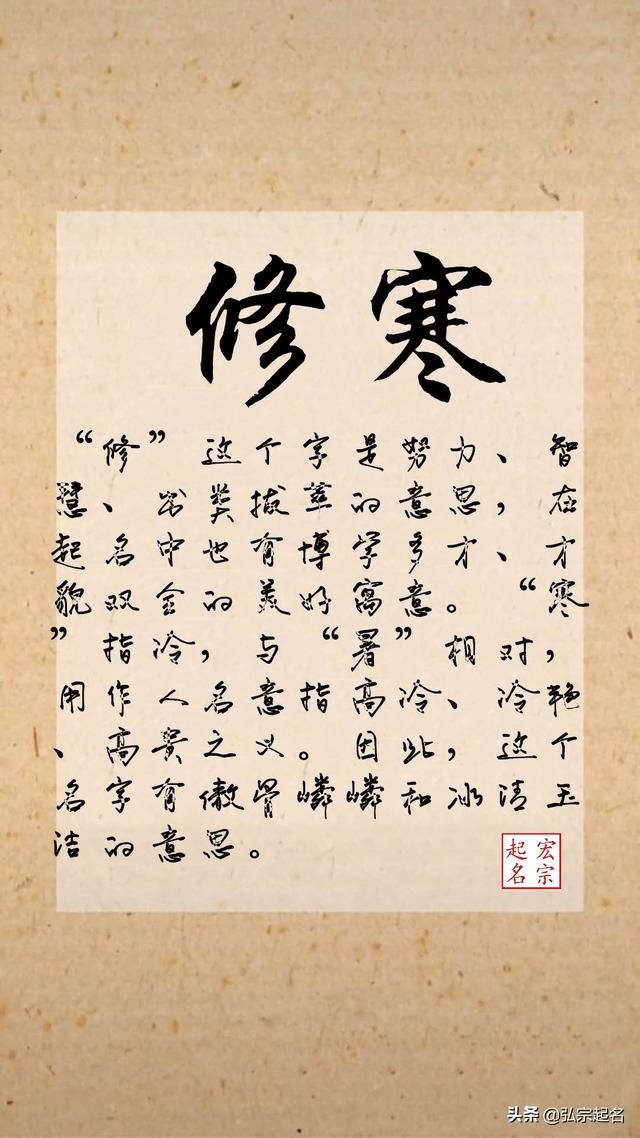 修寒
“修”这个字是努力、智
慧、出类拔萃的意思，在
起名中也有博学多才、才
貌双全的美好寓意。“寒
”指冷，与“暑”相对，
用作人名意指高冷、冷艳
、高贵之义。因此，这个
名字有傲骨嶙嶙和冰清玉
洁的意思。
宏宗
起名
头条 @弘宗起名